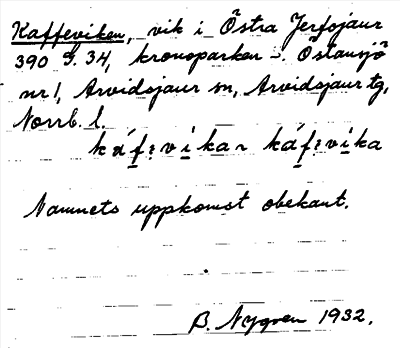 Kaffeviken, vik i Östra Jerfojaur
390 G. 34, kronoparken - Östansjö
nr 1, Arvidsjaur sn, Arvidsjaur tg,
Norrb. l.
Namnets uppkomst obekant.
B. Nygren 1932.